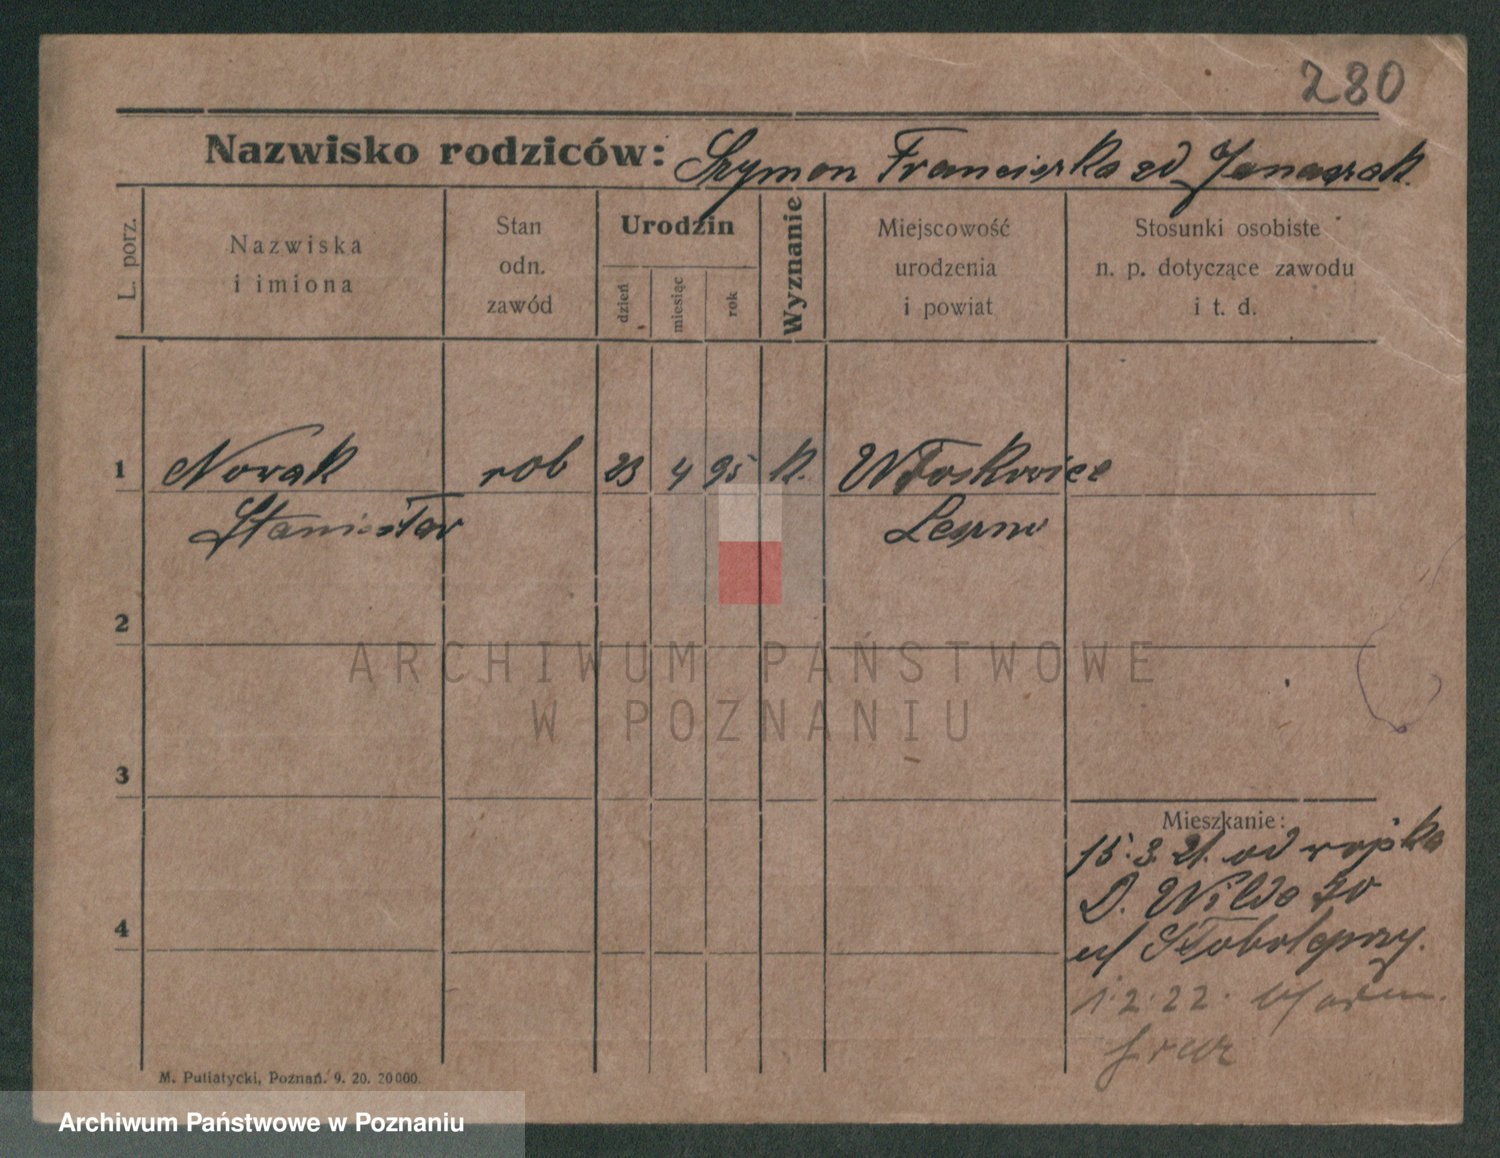 280
Nazwisko rodziców: Szymon Franciszka zd Janaszak.
L. porz.
Nazwiska
i imiona
Stan
odn.
zawód
Urodzin
dzień
miesiąc
rok
Wyznanie
Miejscowość
urodzenia
i powiat
Stosunki osobiste
n. p. dotyczące zawodu
i t. d.
1 Nowak rob 23 4 95 k. Włoskowice
Stanisław Leszno
2
3
4
Mieszkanie:
15.3.21. od wojska
D. Wilda 70
u/
1.2.22.
M. Putiatycki, Poznań. 9. 20. 20000.
ARCHIWUM PAŃSTWOWE
W POZNANIU
Archiwum Państwowe w Poznaniu